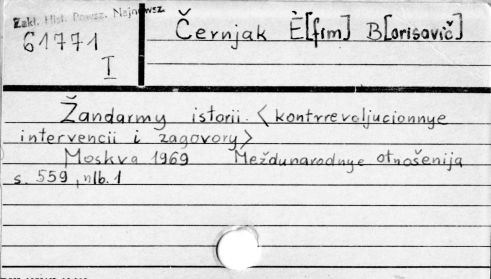 Zakł. Hist. Powsz. Najnowsz.
61771
I
Černjak Ė[fim] B[orisovič]
Žandarmy istorii. <kontrrevoljucionnye
intervencii i zagovory>
Moskva 1969 Meždunarodnye otnošenija
s. 559, nlb. 1